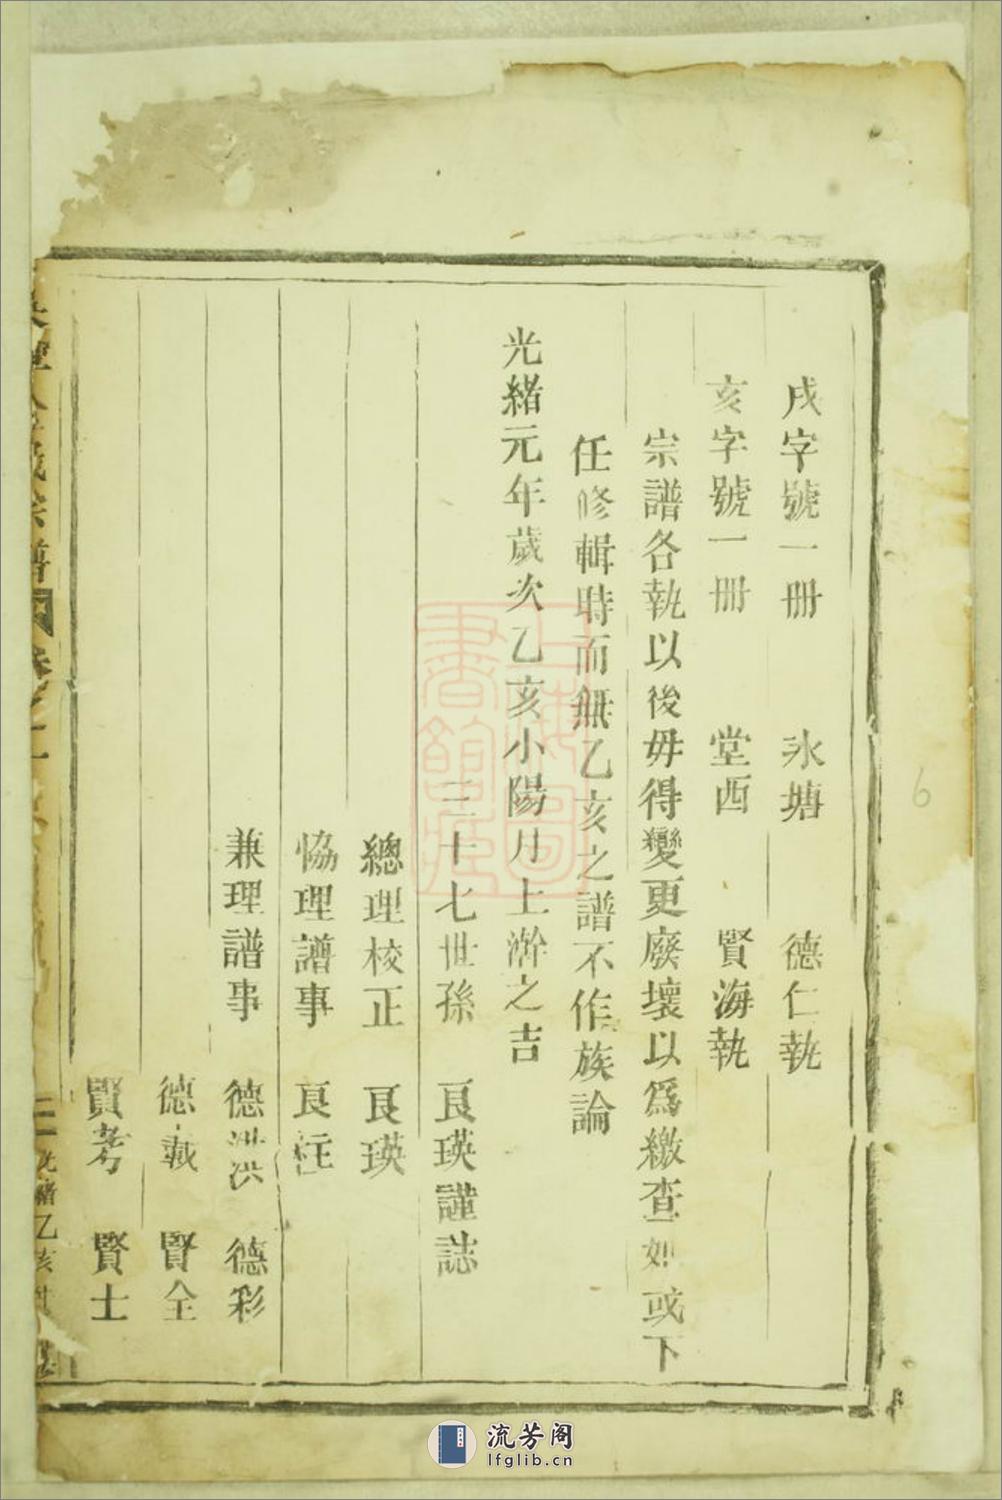 戌字號一冊　永塘　德仁執
亥字號一冊　堂西　賢海執
宗譜各執以後毋得變更廢壞以爲繳查如或下
任修輯時而無乙亥之譜不作族論
光緒元年歲次乙亥小陽月上澣之吉
三十七世孫　良瑛謹誌
總理校正　良瑛
恊理譜事　良
兼理譜事　德洪　德彩
德載　賢全
賢考　賢士
氏宗譜　卷之
光緒乙亥
流芳阁
lfglib.cn